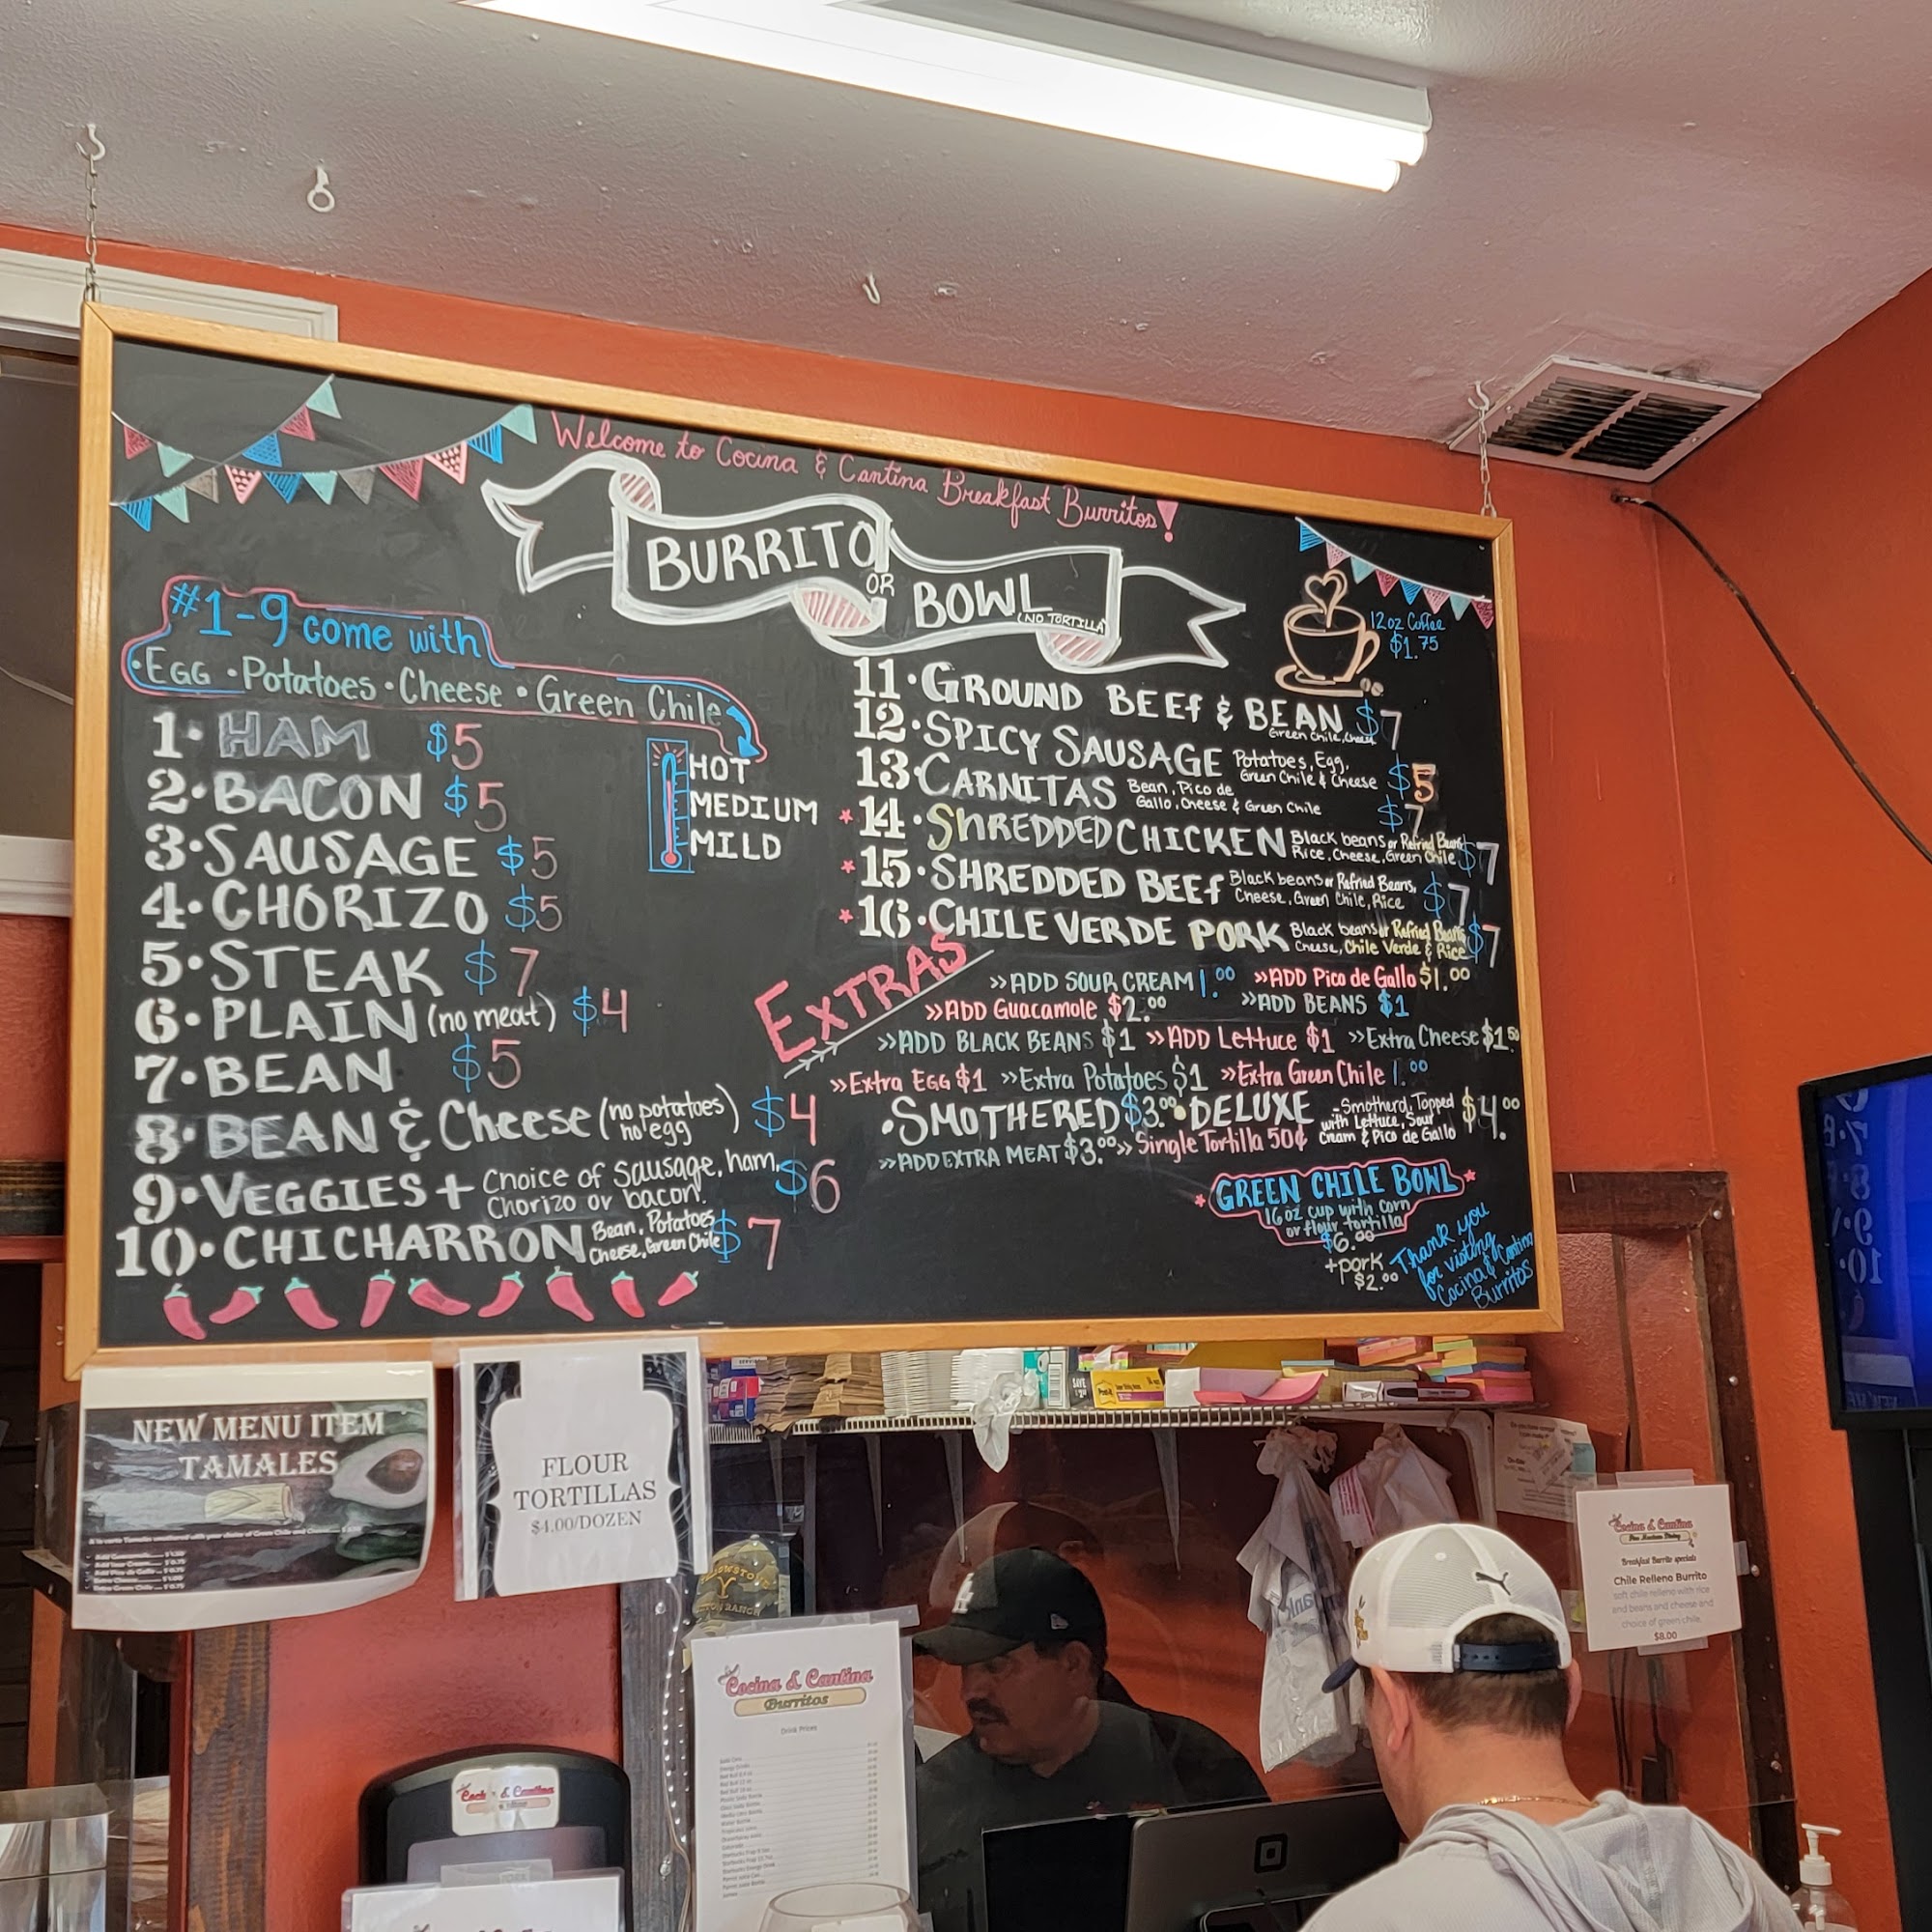 Welcome to Cocina & Cantina Breakfast Burritos!
BURRITO
OR
BOWL
(NO TORTILLA)
12oz Coffee
$1.75
#1-9 come with
•Egg •Potatoes •Cheese •Green Chile
HOT
MEDIUM
MILD
1• HAM $5
2•BACON $5
3•SAUSAGE $5
4•CHORIZO $5
5•STEAK $7
6•PLAIN (no meat) $4
7•BEAN $5
8•BEAN & Cheese (no potatoes) $4
no egg
9•VEGGIES + Choice of Sausage, ham, $6
Chorizo or bacon.
10•CHICHARRON Bean, Potatoes $7
Cheese, Green Chile
11•GROUND BEEF & BEAN $7
Green Chile, Cheese
12•SPICY SAUSAGE Potatoes, Egg, $5
Green Chile & Cheese
13•CARNITAS Bean, Pico de $7
Gallo, Cheese & Green Chile
*14•SHREDDED CHICKEN Black beans or Refried Beans $7
Rice, Cheese, Green Chile
*15•SHREDDED BEEF Black beans or Refried Beans, $7
Cheese, Green Chile, Rice
*16•CHILE VERDE PORK Black beans or Refried Beans $7
Cheese, Chile Verde & Rice
EXTRAS
»ADD SOUR CREAM 1.00 »ADD Pico de Gallo $1.00
»ADD Guacamole $2.00 »ADD BEANS $1
»ADD BLACK BEANS $1 »ADD Lettuce $1 »Extra Cheese $1.50
»Extra Egg $1 »Extra Potatoes $1 »Extra Green Chile 1.00
•SMOTHERED $3.00 •DELUXE -Smotherd, Topped $4.00
with Lettuce, Sour
Cream & Pico de Gallo
»ADD EXTRA MEAT $3.00 »Single Tortilla 50¢
*GREEN CHILE BOWL*
16oz cup with corn
or flour tortilla
$6.00
+pork
$2.00
Thank you
for visting
Cocina & Cantina
Burritos
NEW MENU ITEM
TAMALES
FLOUR
TORTILLAS
$4.00/DOZEN
YELLOWSTONE
RANCH
LA
Cocina & Cantina
Burritos
Drink Prices
Cocina & Cantina
Cocina & Cantina
New Mexican Dining
Breakfast Burrito specials
Chile Relleno Burrito
soft chile relleno with rice
and beans and cheese and
choice of green chile.
$8.00